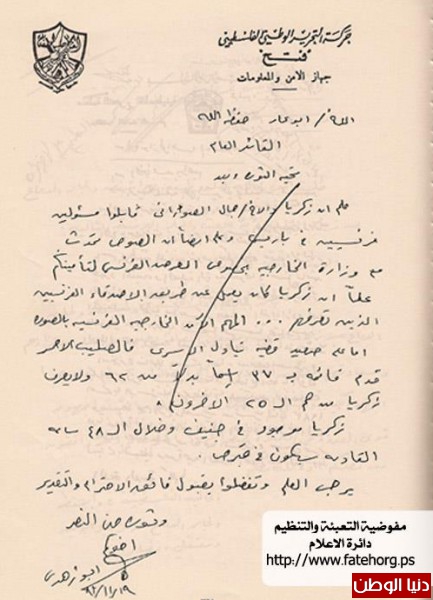 حركة التحرير الوطني الفلسطيني
"فتح"
جهاز الأمن والمعلومات
الاخ / ابو عمار حفظه الله
القائد العام
تحية الثورة وبعد
علم ان زكريا والاخ / جمال الصوراني قابلوا مسئولين
فرنسيين في باريس وعلم ايضاً ان الصوص تحدث
مع وزارة الخارجيه بخصوص العرض الفرنسي لتأمينكم
علماً ان زكريا كان يعمل عن طريق الاصدقاء الفرنسيين
الذين تعرفهم ... المهم الآن الخارجيه الفرنسيه بالصوره
اما على صعيد قضية تبادل الاسرى فالصليب الاحمر
قدم قائمه بـ ٣٧ اسماً بدلاً من ٦٢ ولا يعرف
زكريا من هم الـ ٢٥ الاخرون.
زكريا موجود في جنيف وخلال الـ ٤٨ ساعه
القادمه سيكون في قبرص.
يرجى العلم وتفضلوا بقبول فائق الاحترام والتقدير
وثوره حتى النصر
اخوكم
ابو الزعيم
مفوضية التعبئة والتنظيم
دائرة الاعلام
http://www.fatehorg.ps
دنيا الوطن